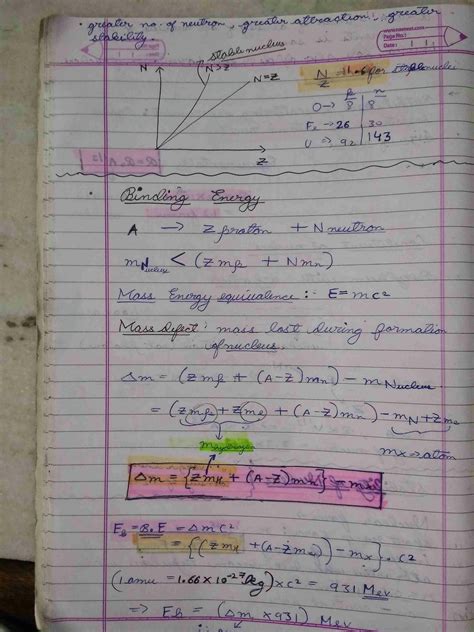 • greater no. of neutron, greater attraction, greater
stability.
Page No.:
Date:
Stable nucleus
N
N>Z
N=Z
Z
N/Z = 1.6 for stable nuclei
p n
O → 8 8
Fe → 26 30
U → 92 143
Binding Energy
A → Z proton + N neutron
mNucleus < (Zmp + Nmn)
Mass Energy equivalence :- E=mc²
Mass defect : mass lost during formation
of nucleus.
Δm = (Zmp + (A-Z)mn) - mNucleus
= (Zmp + Zme + (A-Z)mn) - mN + Zme
mx → atom
Δm = {ZmH + (A-Z)mn} - mx
EB = B.E = Δmc²
= {(ZmH + (A-Z)mn) - mx}·c²
(1 amu = 1.66 × 10⁻²⁷ kg) × c² = 931 Mev
⇒ EB = (Δm × 931) Mev